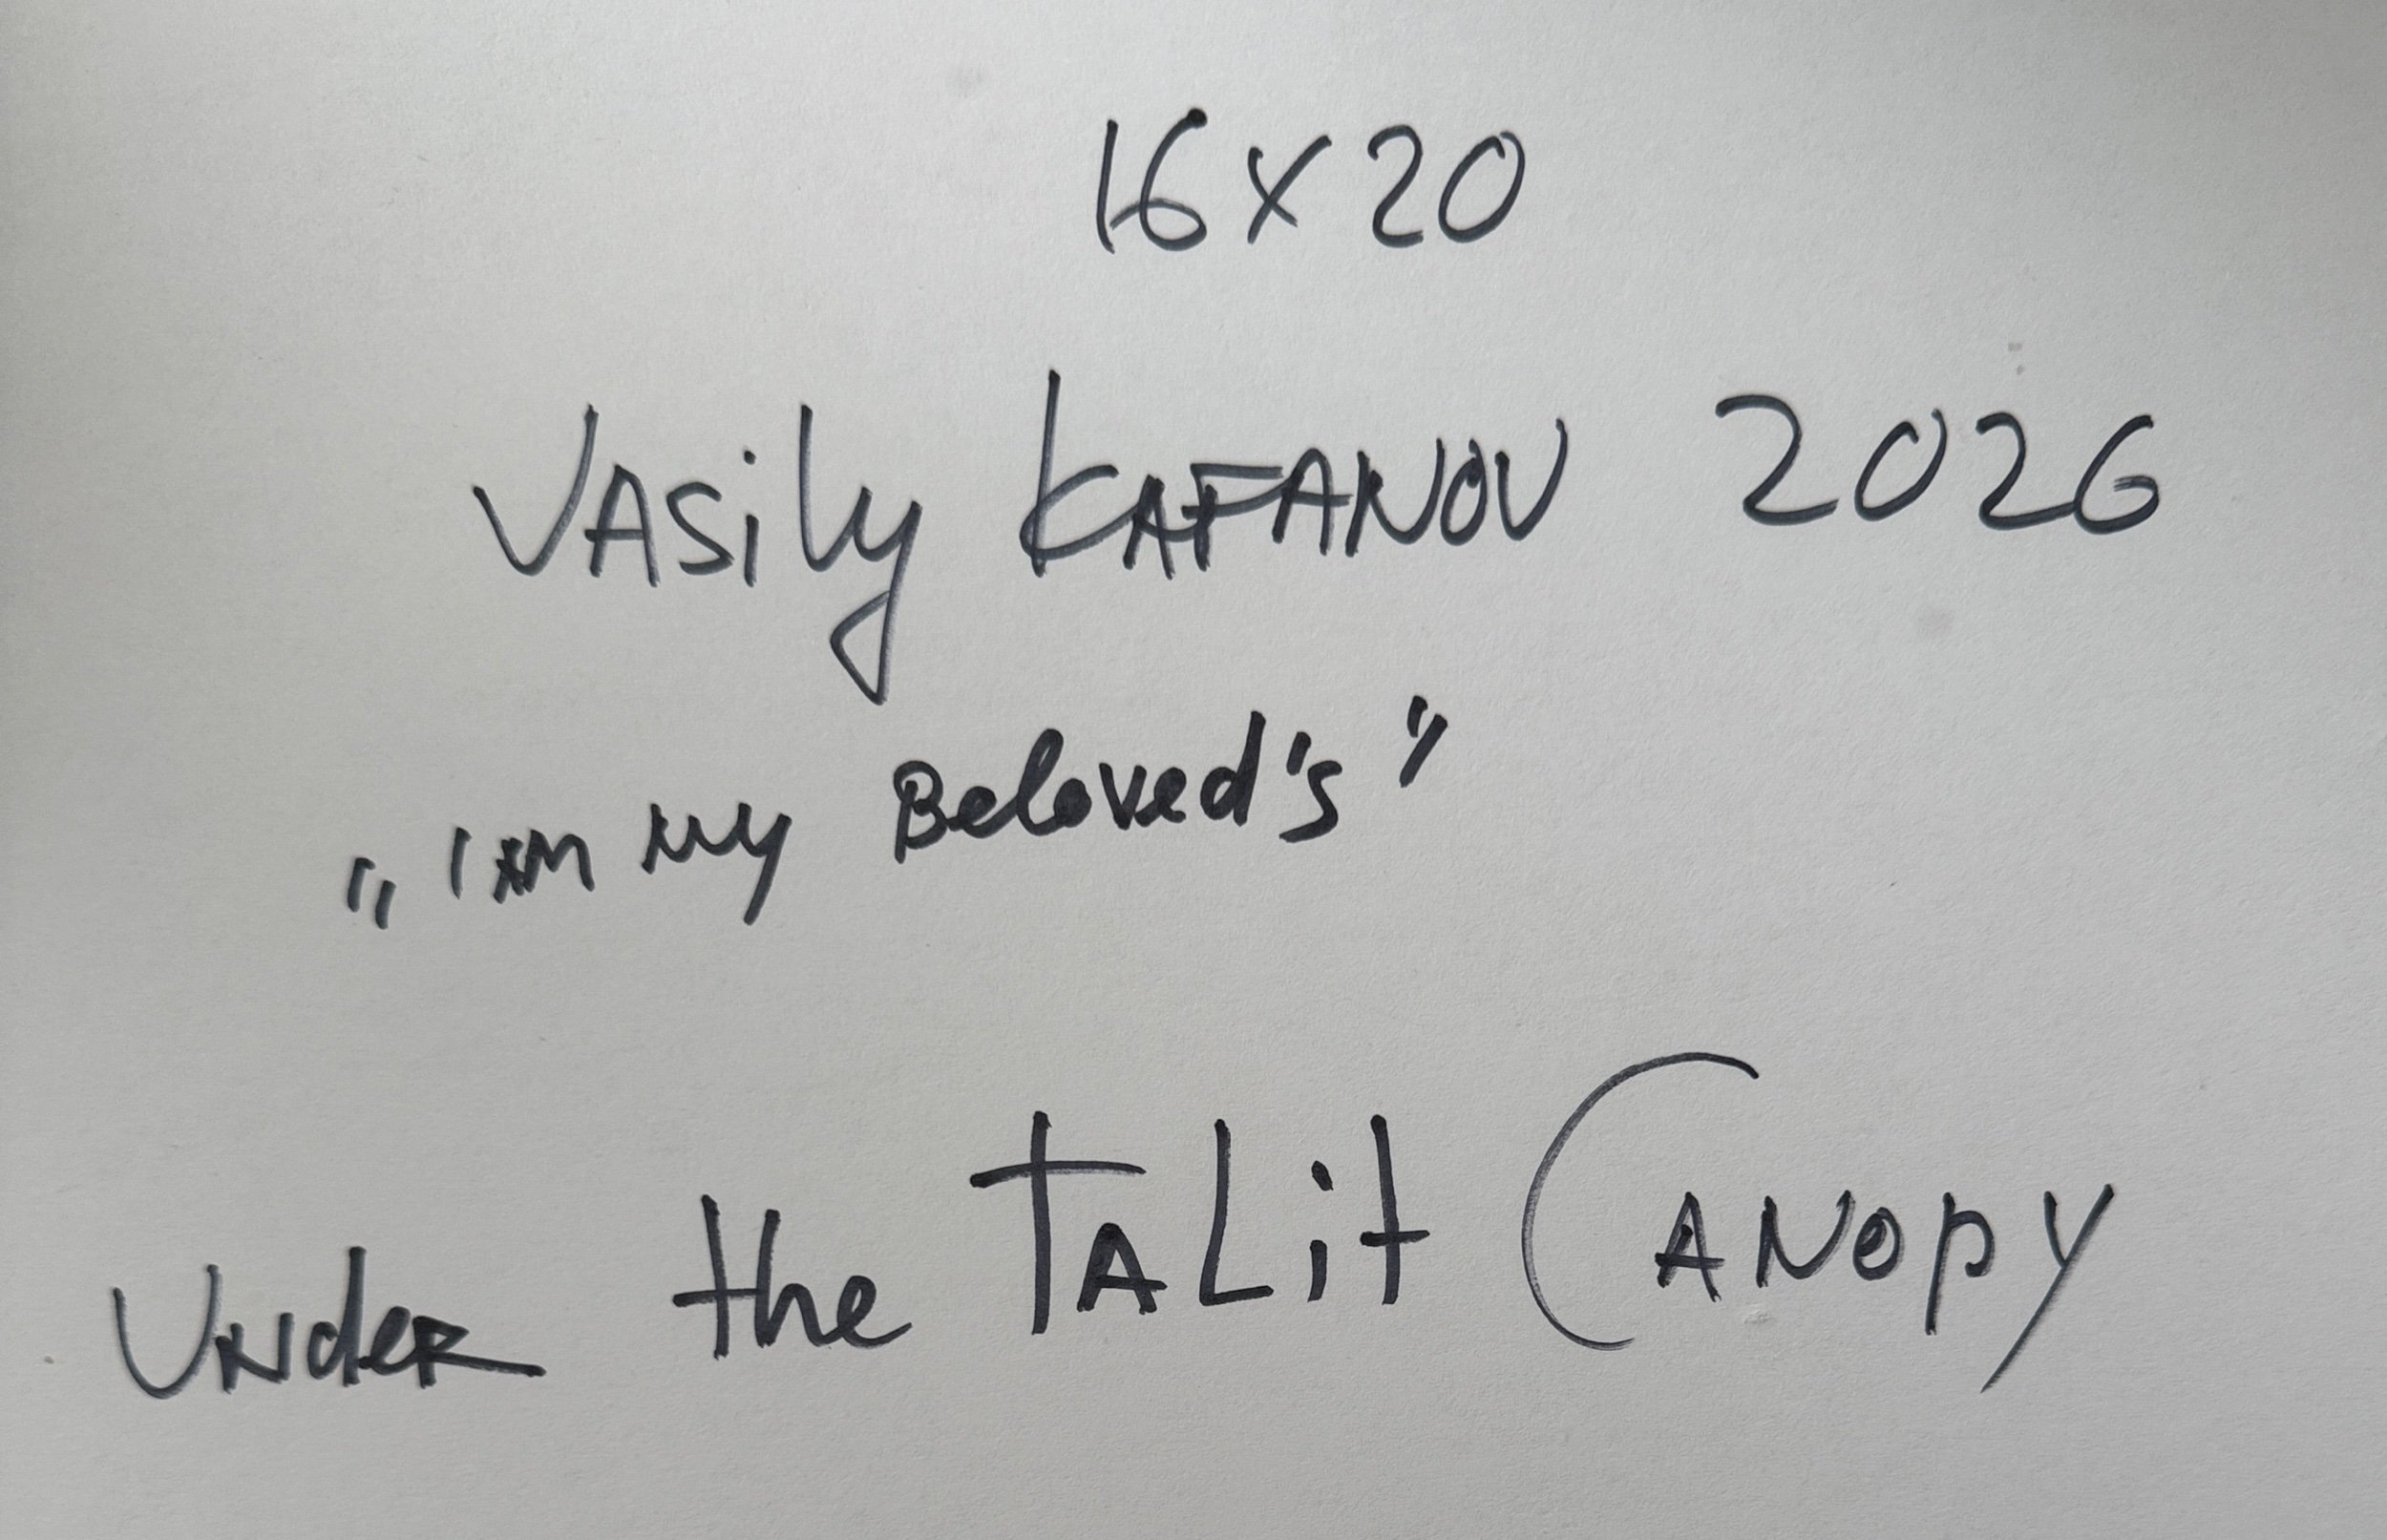 16 x 20
Vasily Kafanov 2026
„I am my Beloved's"
Under the Talit Canopy